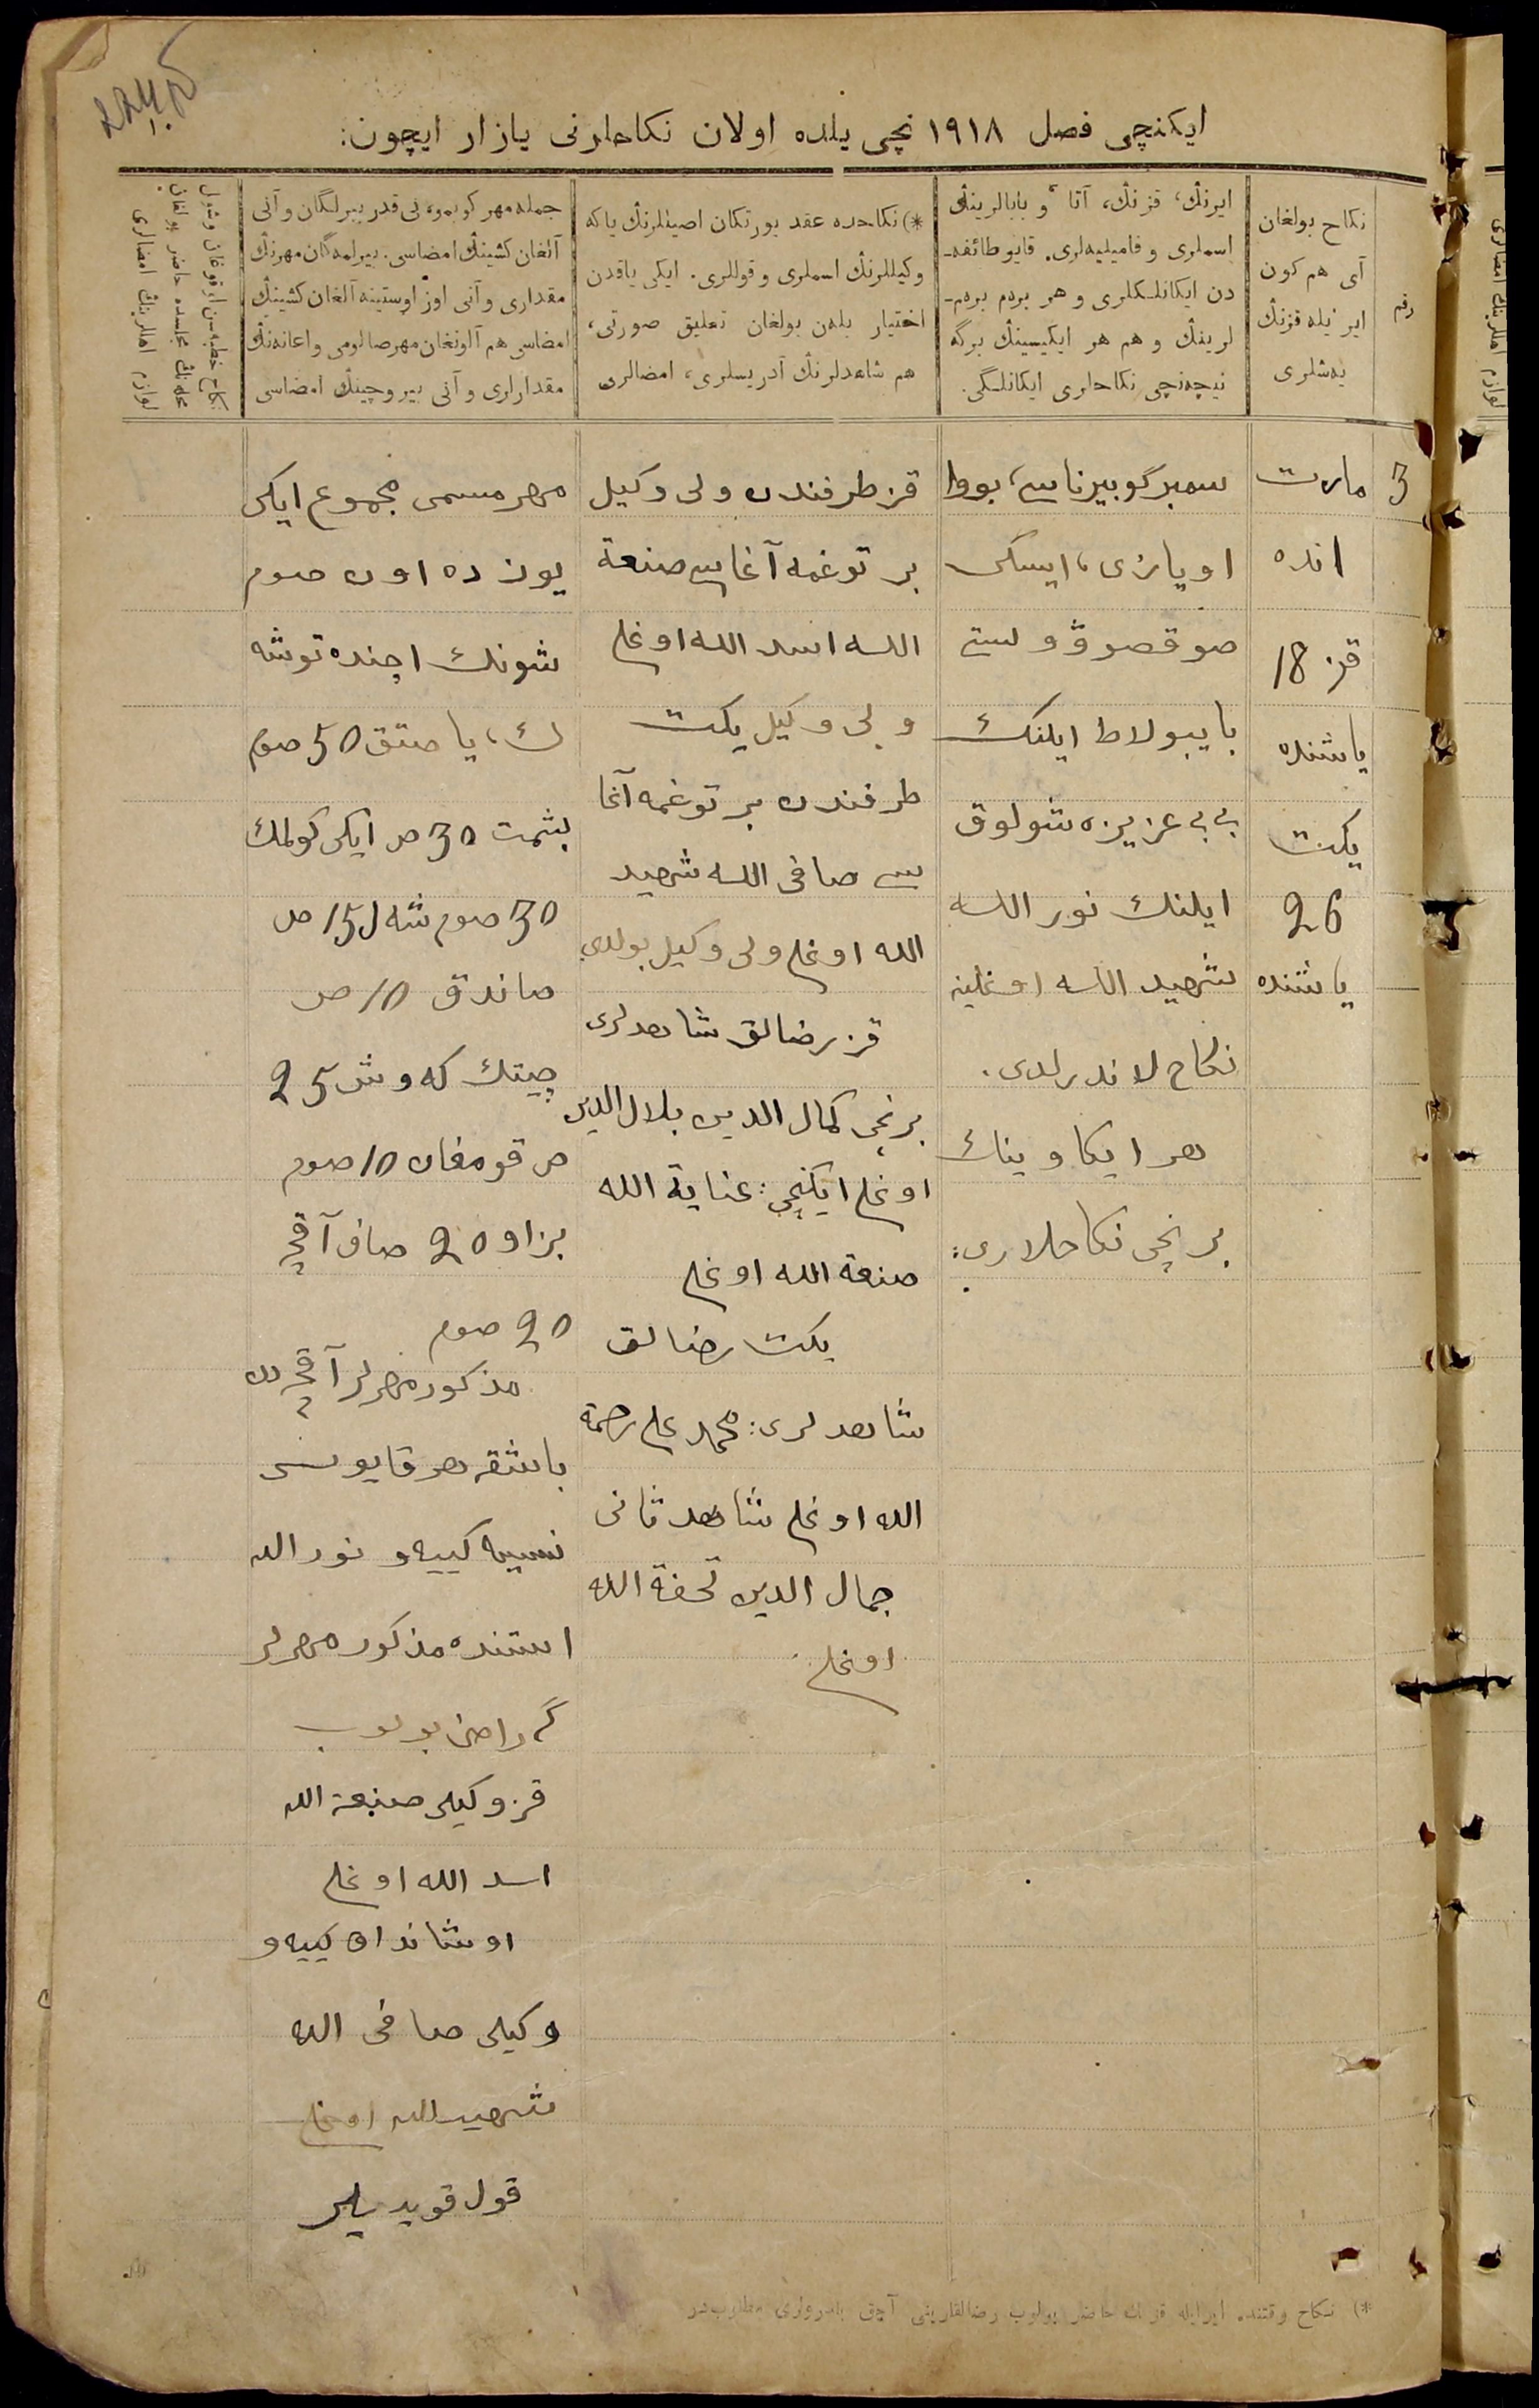 ايكنچی فصل ١٩١٨ نچی يلده اولان نكاحلرنی يازار ايچون:
رقم
نكاح بولغان
آی هم كون
اير ئيله قزنڭ
يه‌شلری
ايرنڭ، قزنڭ، آتا و بابالرينڭ
اسملری و فاميليه‌لری. قايو طائفه‌ـ
دن ايكانلكلری و هر بردم بردم‌ـ
لرينڭ و هم هر ايكيسينڭ برگه
نيچه‌نچی نكاحلری ايكانلگی.
*) نكاحده عقد يورتكان اصيللرنڭ ياكه
وكيللرنڭ اسملری و قوللری. ايكی ياقدن
اختيار بلەن بولغان تعليق صورتی،
هم شاهدلرنڭ آدريسلری، امضالری
جمله مهر كوبمو، نی قدر بيرلگان و آنی
آلغان كشينڭ امضاسی. بيرلمه‌گان مهرنڭ
مقداری و آنی اوز اوستينه آلغان كشينڭ
امضاسی هم آلونغان مهر صالومی و اعانه‌نڭ
مقدارلری و آنی بيروچينڭ امضاسی
5
مارت
انده
قز 18
ياشنده
يكت
26
ياشنده
سمبر گوبيرناسی، بووا
اويازی، ايسكی
صوقصوو ولستی
بايبولاط ايلنك
بی بی عزيزه شولوق
ايلنك نور الله
شهيد الله اوغلينه
نكاح لاندرلدی.
هر ايكاوينك
برنچی نكاحلاری:
قز طرفندن ولی وكيل
بر توغمه آغاسی صنعة
الله اسد الله اوغلی
ولی وكيل يكت
طرفندن بر توغمه آغا
سی صافی الله شهيد
الله اوغلی ولی وكيل بولدی
قز رضالق شاهدلری
برنچی كمال الدين بلال الدين
اوغلی ايكنچی: عناية الله
صنعة الله اوغلی
يكت رضالق
شاهدلری: محمد علی رحمة
الله اوغلی شاهد ثانی
جمال الدين تحفة الله
اوغلی
مهر مسمی مجموع ايكی
يوز ده اون صوم
شونك اچنده توشه
ك، ياصتق 50 صوم
بشمت 30 ص ايكی كولمك
30 صوم شه‌ل 15 ص
صاندق 10 ص
چيتك كه‌وش 25
ص قومغان 10 صوم
بزاو 20 صاف آقچه
20 صوم
مذكور مهرلر آقچه‌دن
باشقه هر قايوسی
نسيه كييه‌و نور الله
استنده مذكور مهرلر
گه راضی بولوب
قز وكيلی صنعة الله
اسد الله اوغلی
اوشانداق كييه‌و
وكيلی صافی الله
شهيد الله اوغلی
قول قويديلر
*) نكاح وقتنده ايرايله قزنڭ حاضر بولوب رضالقلرينی آچق بلدرولری مطلوبدر